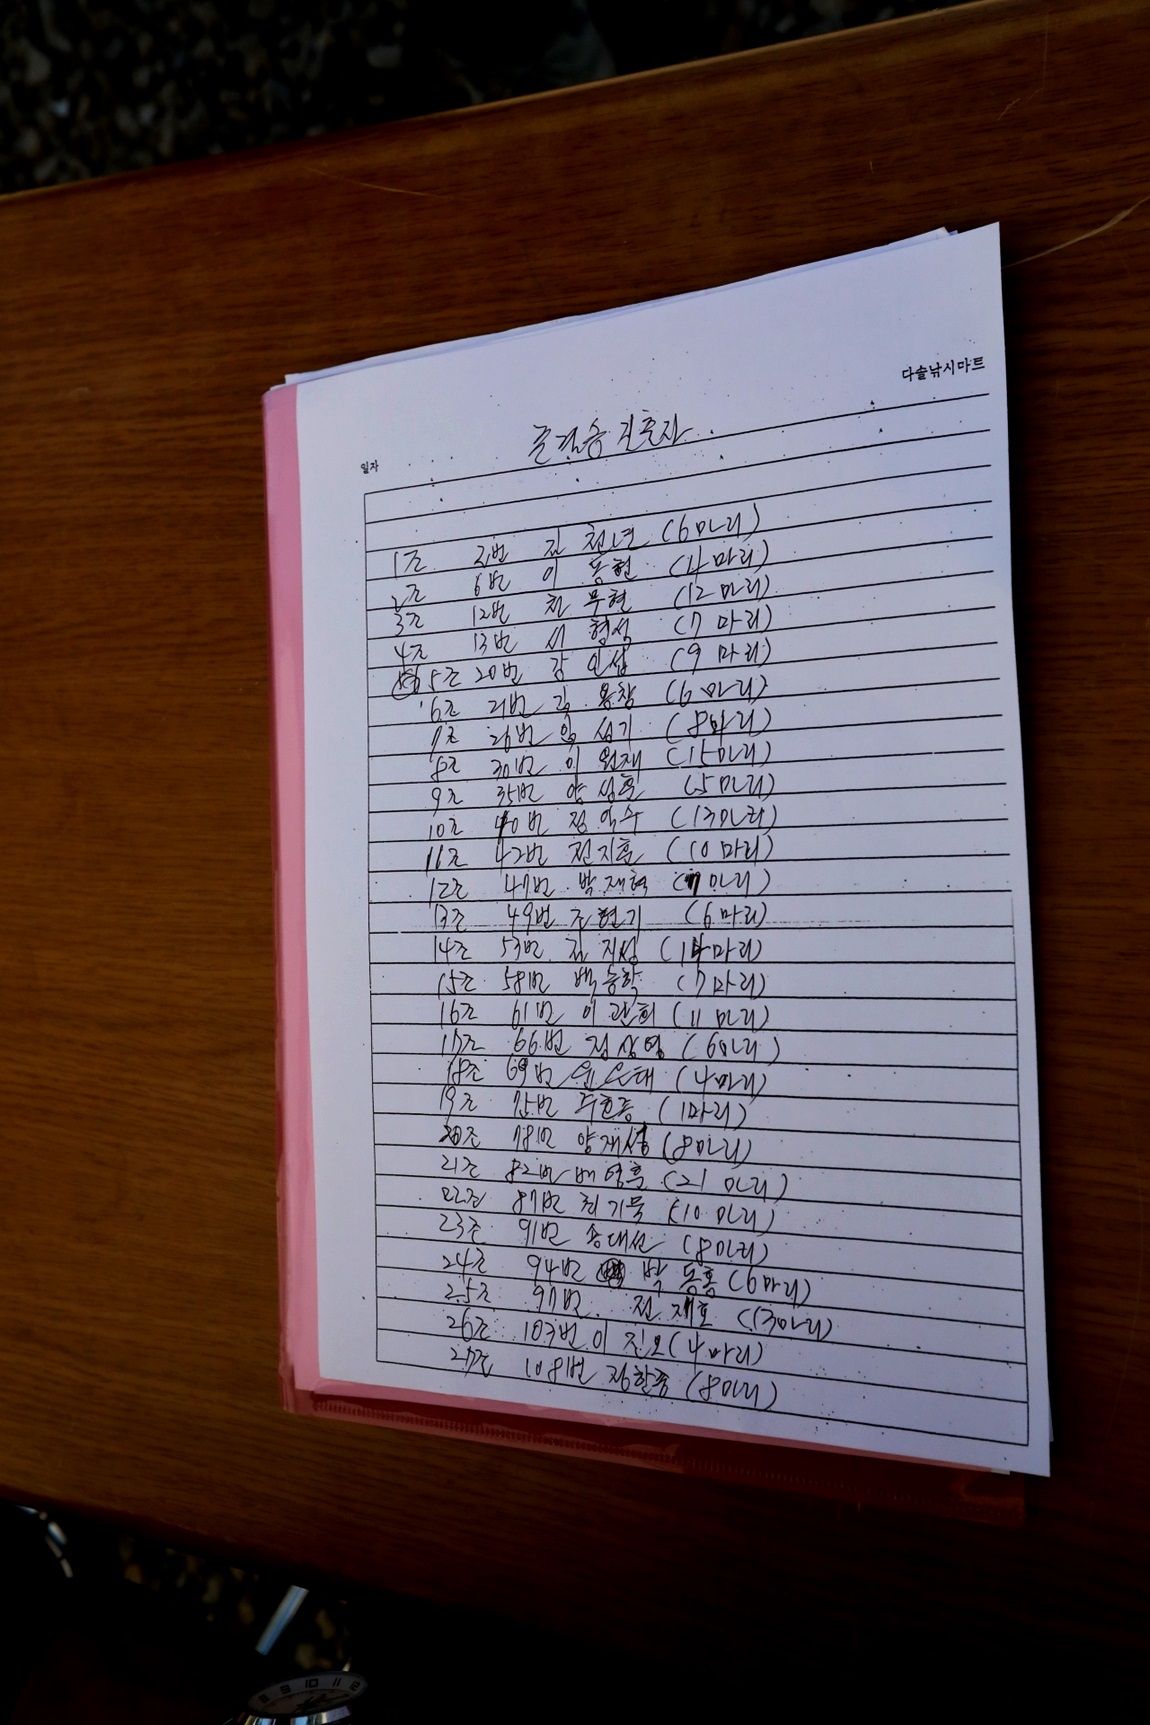 다솔낚시마트
준결승 진출자
일자
1조 2번 김천년 (6마리)
2조 6번 이용현 (4마리)
3조 12번 천무현 (12마리)
4조 13번 서형석 (7마리)
5조 20번 강인섭 (9마리)
6조 21번 김용창 (6마리)
7조 26번 임섭기 (8마리)
8조 30번 이원재 (15마리)
9조 35번 양성훈 (5마리)
10조 40번 정억수 (13마리)
11조 42번 전지훈 (10마리)
12조 47번 박재혁 (7마리)
13조 49번 조현기 (6마리)
14조 53번 김지성 (14마리)
15조 58번 백동학 (7마리)
16조 61번 이관희 (11마리)
17조 66번 정상영 (6마리)
18조 69번 윤은태 (4마리)
19조 번 주호종 (1마리)
20조 78번 양재성 (8마리)
21조 82번 배영훈 (21마리)
22조 87번 최기묵 (10마리)
23조 91번 송대선 (8마리)
24조 94번 박동홍 (6마리)
25조 97번 전재호 (13마리)
26조 103번 이진오 (4마리)
27조 108번 정할종 (8마리)
8 9 10 11 12